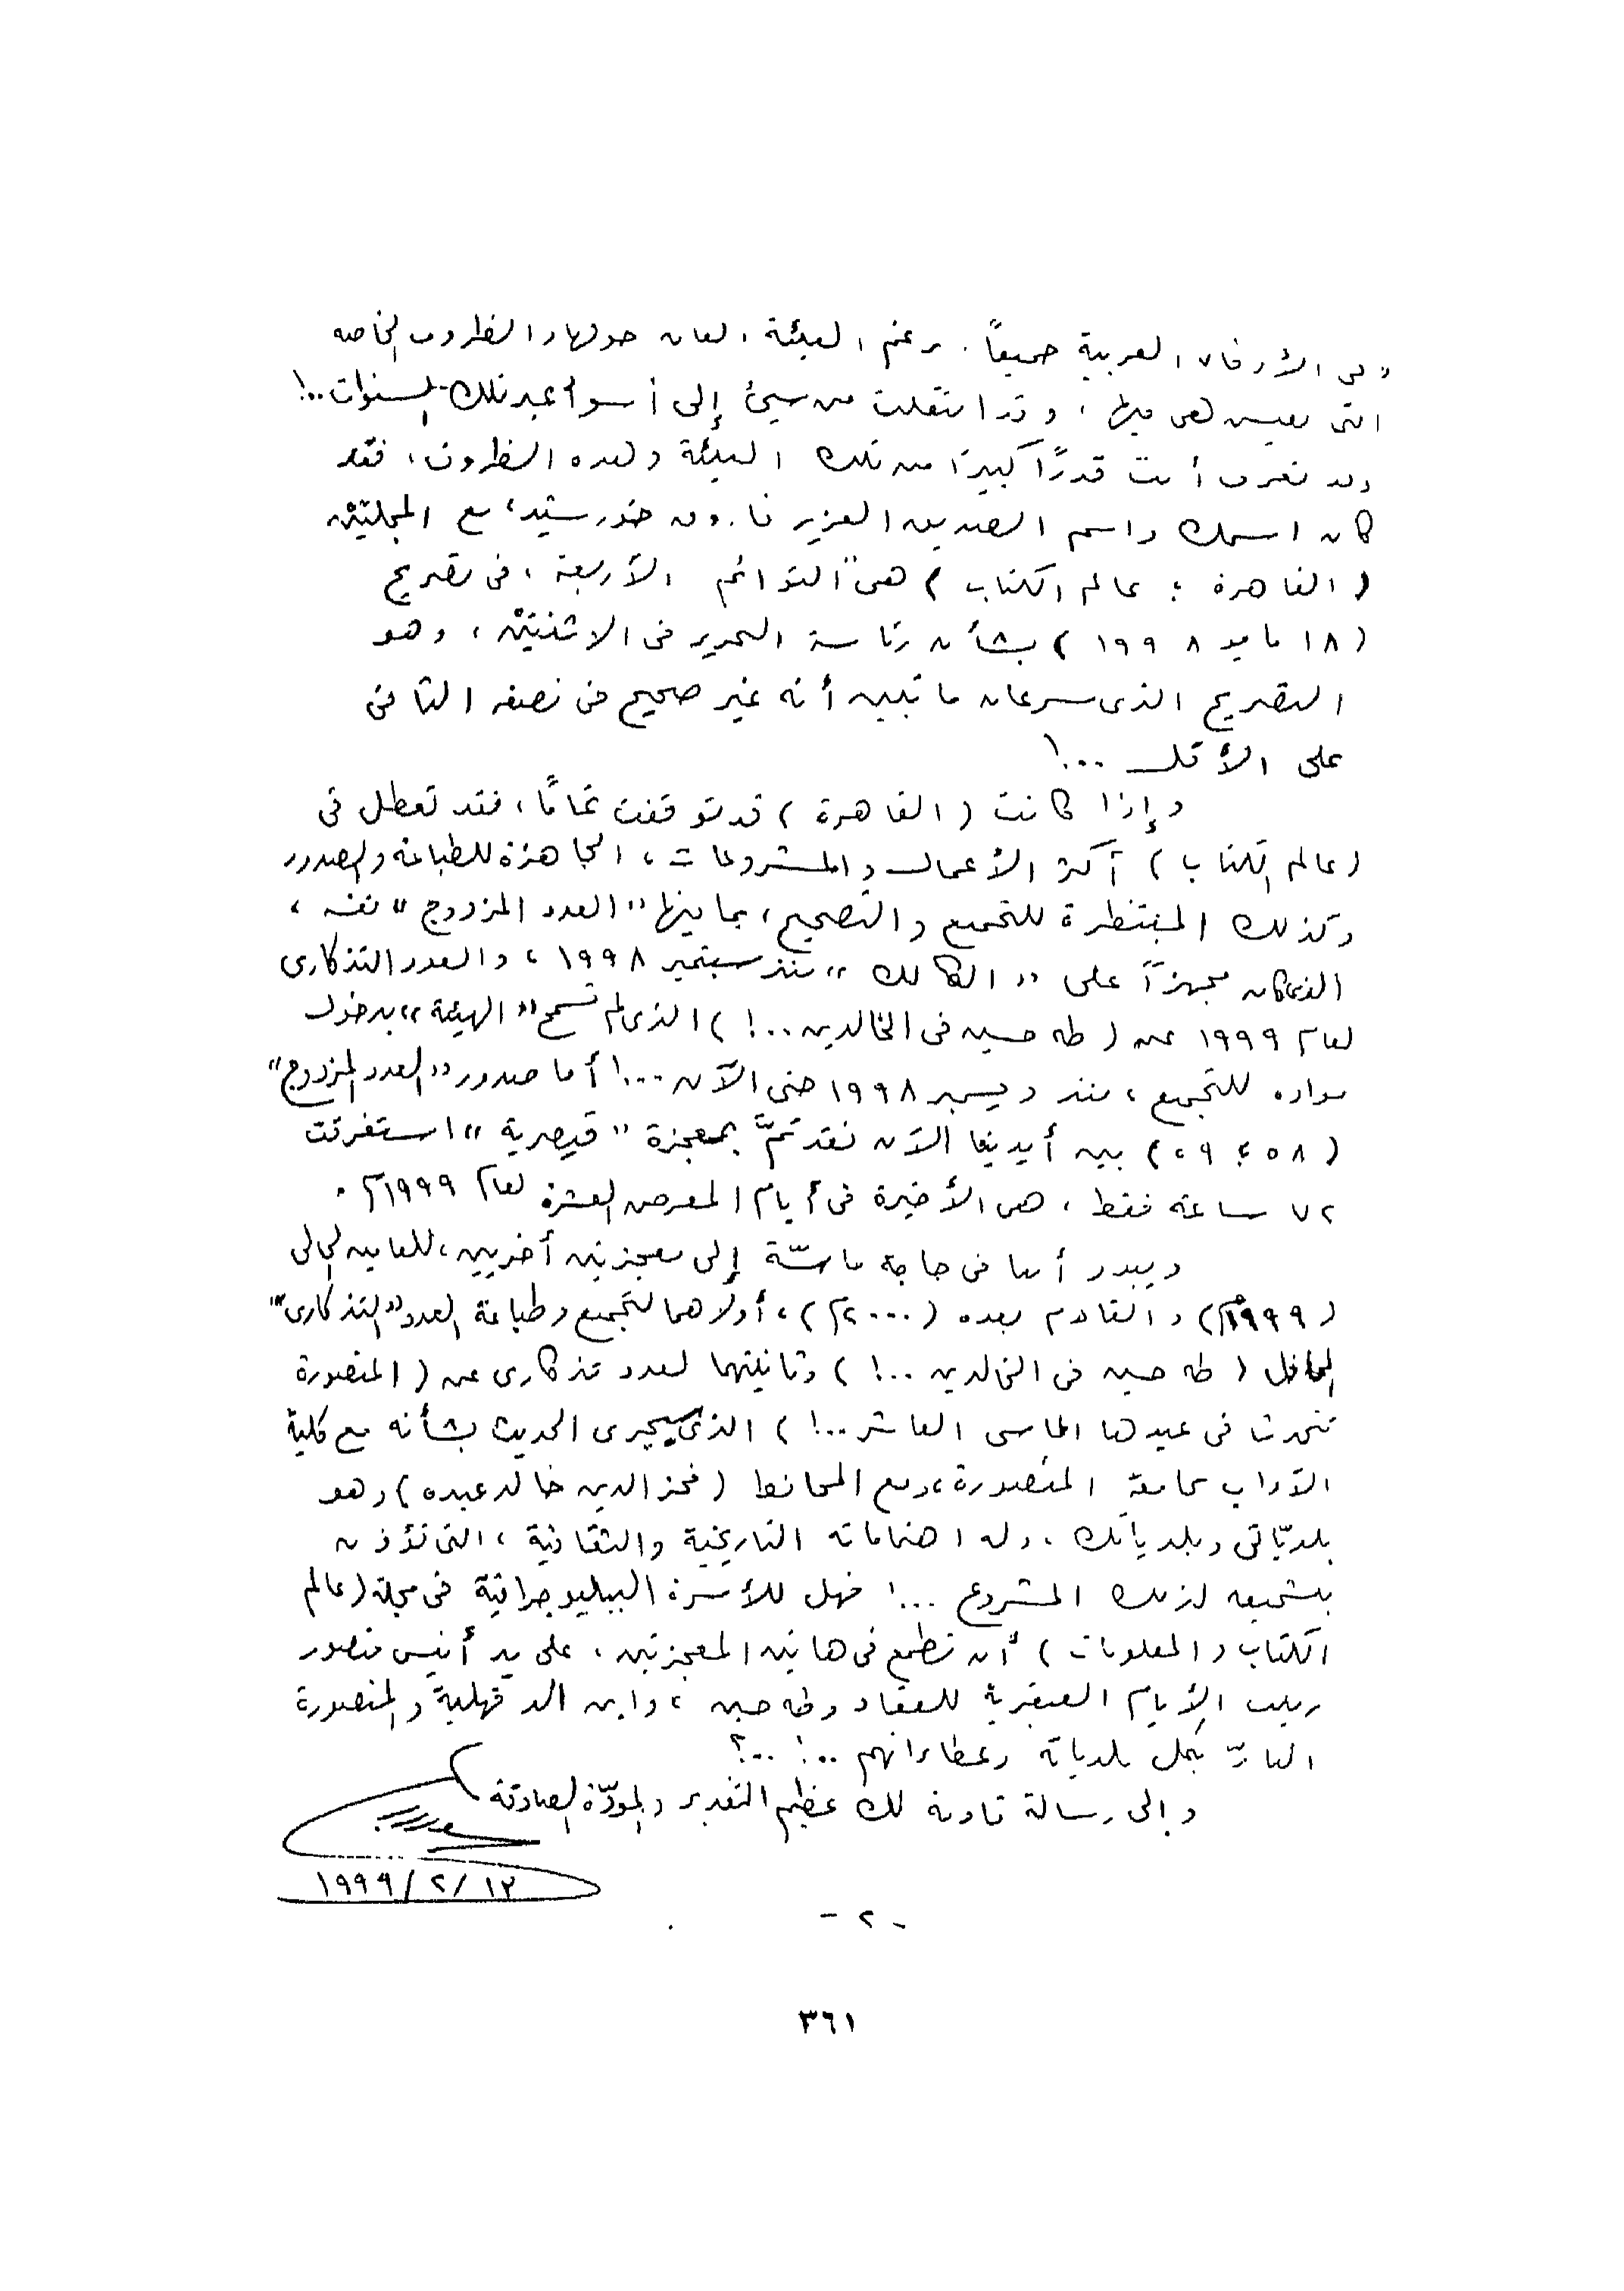 الأوفاء العربية جميعاً. رغم البيئة العامة حولها والظروف الخاصة
التى تعيش هى فيها، وقد انتقلت من سيئ إلى أسوأ عبر تلك السنوات..!
وقد تعرف أنت قدرًا كبيرًا من تلك البيئة وهذه الظروف، فقد
كان اسمك واسم الصديق العزيز فاروق خورشيد، مع المجلتيْن
(القاهرة ؛ عالم الكتاب) هى التوائم الأربعة، فى تصريح
(١٨ مايو ١٩٩٨) بشأن رئاسة التحرير فى الاثنتيْن، وهو
التصريح الذى سرعان ما تبين أنه غير صحيح فى نصفه الثانى
على الأقل ...!
وإذا كانت (القاهرة) قد توقفت تمامًا، فقد تعطل فى
(عالم الكتاب) أكثر الأعمال والمشروعات، الجاهزة للطباعة والصدور
وكذلك المنتظرة للتجميع والتصحيح، بما فيها "العدد المزدوج" نفسه،
الذى كان مجهزاً على "الكالك" منذ سبتمبر ١٩٩٨، والعدد التذكارى
لعام ١٩٩٩ عن (طه حسين فى الخالدين..!) الذى لم تسمح "الهيئة" بدخول
مواده للتجميع، منذ ديسمبر ١٩٩٨ حتى الآن ...! أما صدور "العدد المزدوج"
(٥٨ ؛ ٥٩) بين أيدينا الآن فقد تمَّ بمعجزة "قيصرية" استغرقت
٧٢ ساعة فقط، هى الأخيرة فى أيام المعرض العشرة لعام ١٩٩٩م.
ويبدو أننا فى حاجة ماسّة إلى معجزتين أخريين، للعامين الحالى
(١٩٩٩م) والقادم بعده (٢٠٠٠م)، أولاهما لتجميع وطباعة العدد "التذكارى"
الحافل (طه حسين فى الخالدين ..!) وثانيتهما لعدد تذكارى عن (المنصورة
تتحدث فى عيدها الماسى العاشر ..!) الذى سيجرى الحديث بشأنه مع كلية
الآداب بجامعة المنصورة، ومع المحافظ (فخر الدين خالد عبده) وهو
بلديّاتى وبلدياتك، وله اهتماماته التاريخية والثقافية، التى تؤذن
بتشجيعه لذلك المشروع ...! فهل للأسرة الببليوجرافية فى مجلة (عالم
الكتاب والمعلومات) أن تطمع فى هاتين المعجزتين، على يد أنيس منصور
ربيب الأيام العبقرية للعقاد وطه حسين، وابن الدقهلية والمنصورة
البارّ بكل بلدياته وعطاءاتهم ..! ..؟
وإلى رسالة قادمة لك عظيم التقدير والمودّة الصادقة
١٩٩٩/٢/١٢
- ٢ -
٣٦١